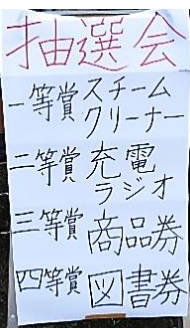 抽選会
一等賞 スチーム
クリーナー
二等賞 充電
ラジオ
三等賞 商品券
四等賞 図書券